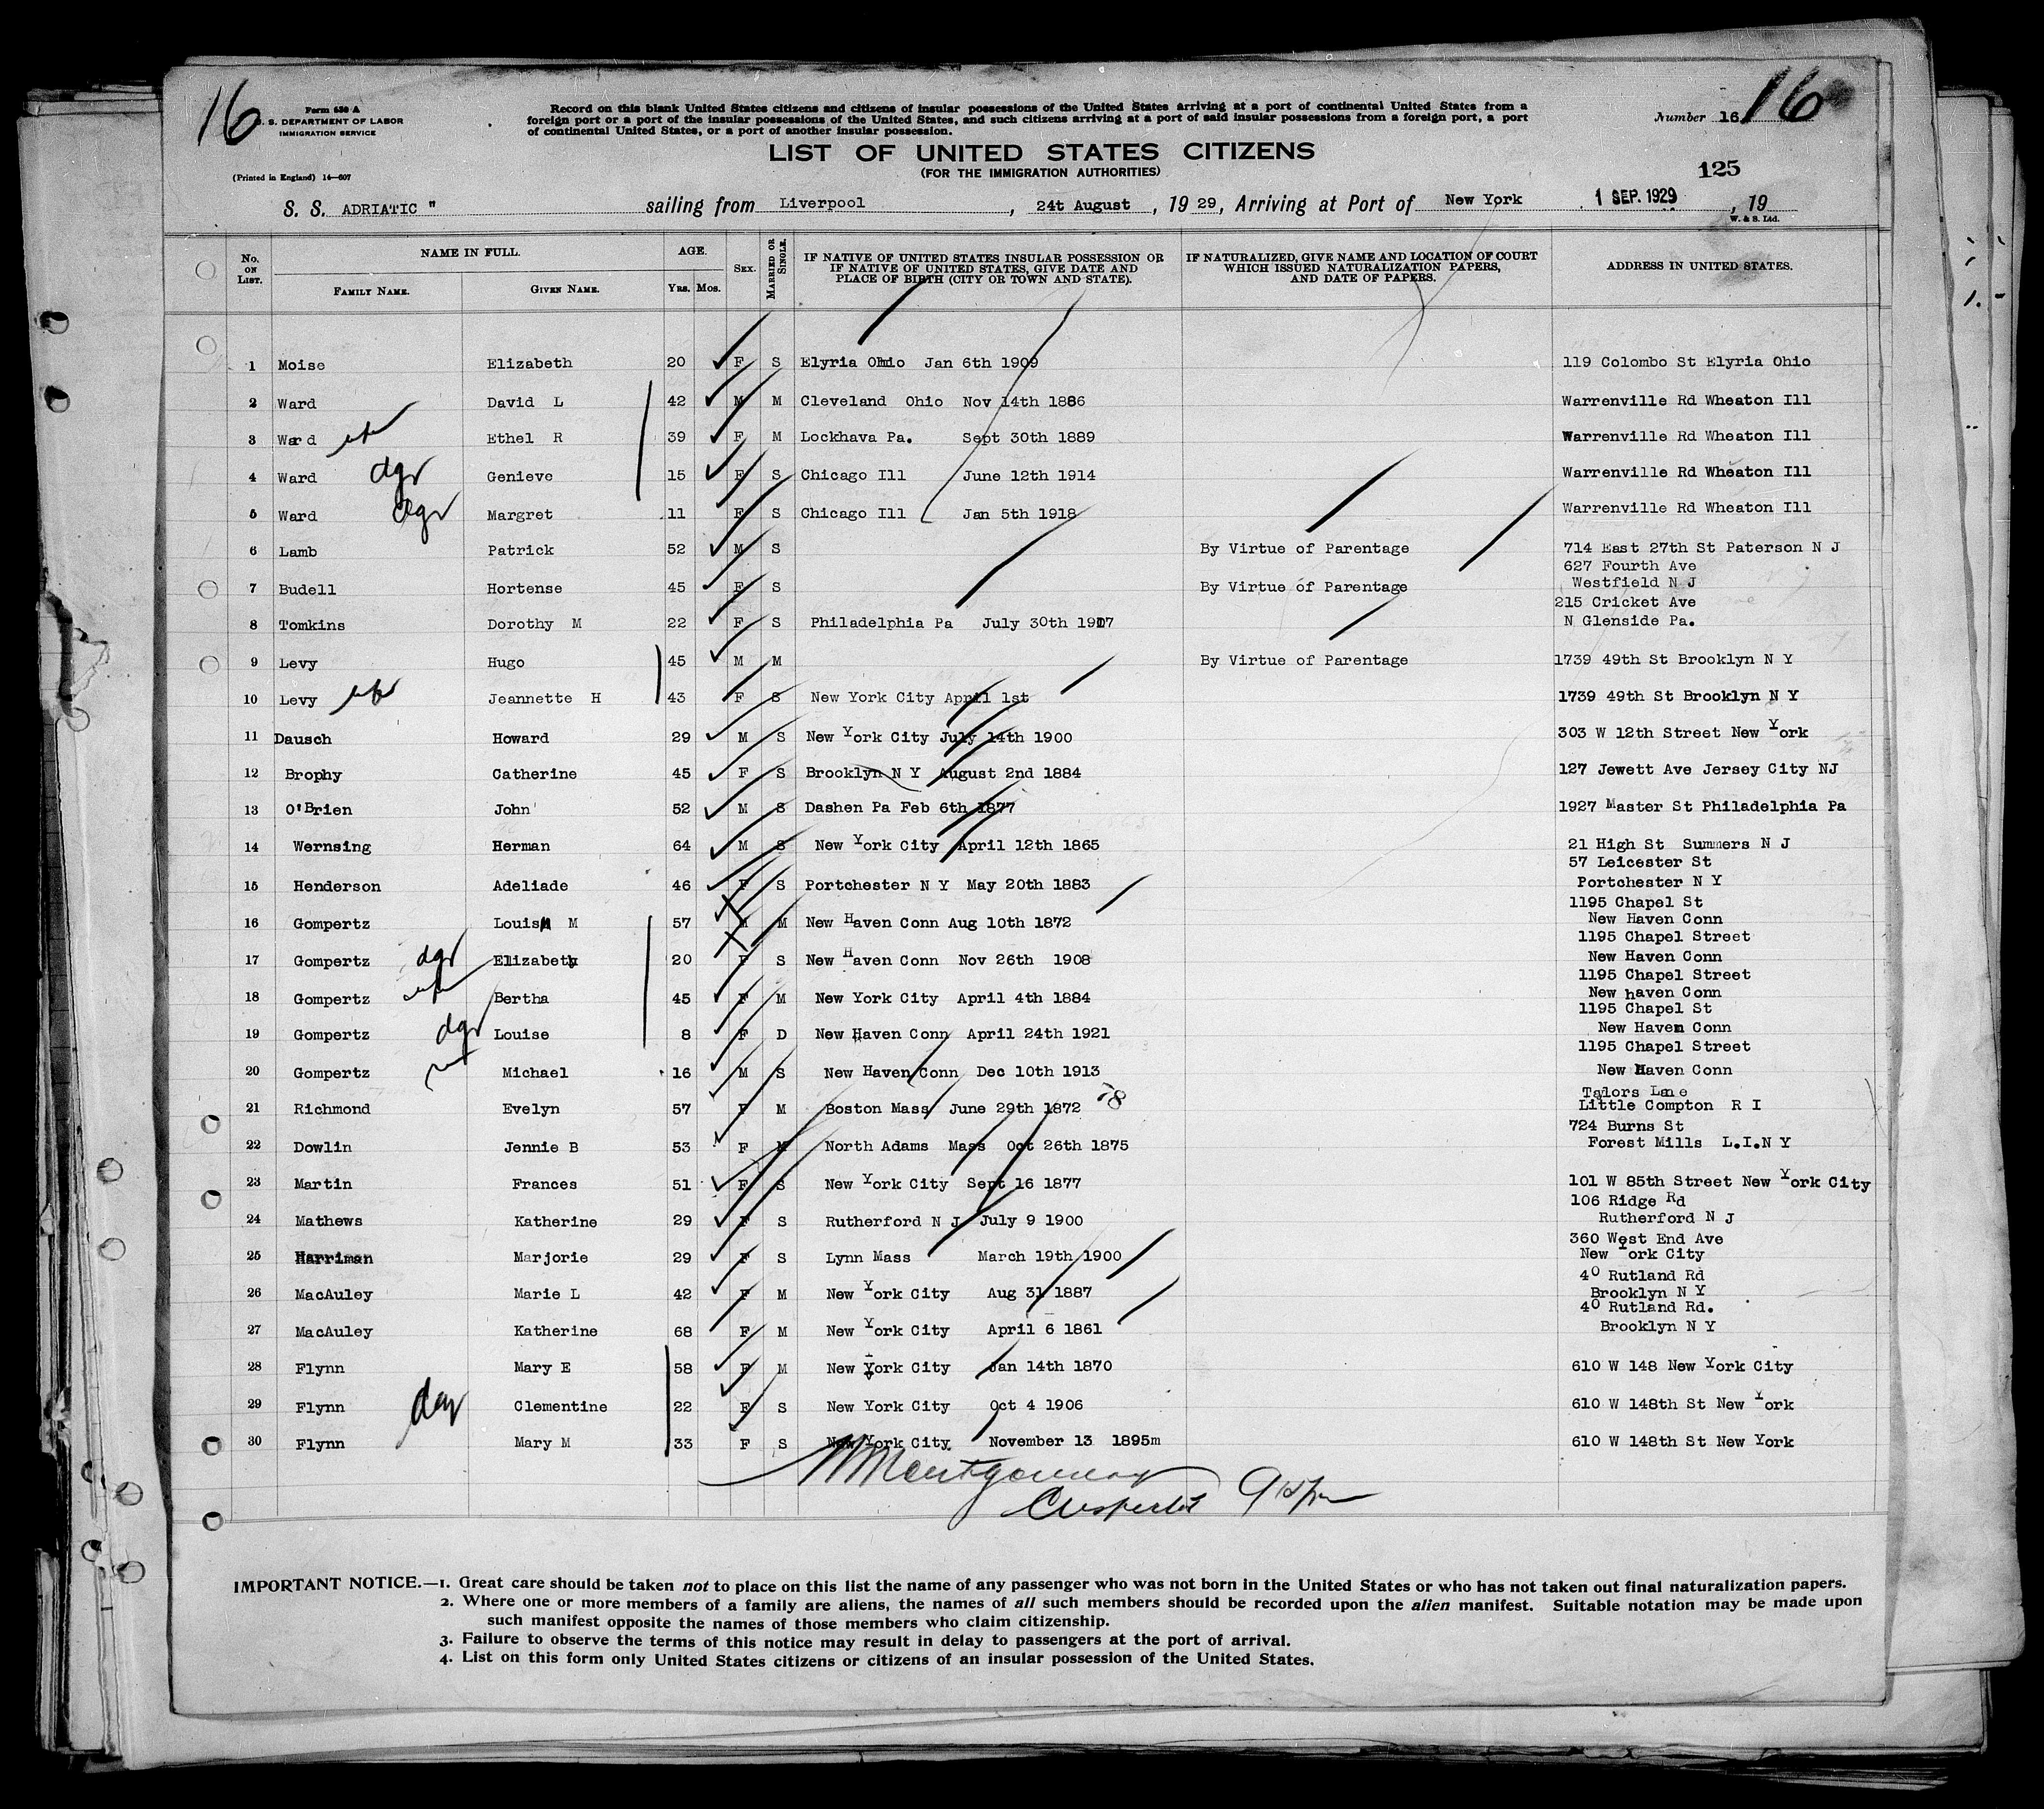 16
Form 630 A
U. S. DEPARTMENT OF LABOR
IMMIGRATION SERVICE
(Printed in England) 14—607
Record on this blank United States citizens and citizens of insular possessions of the United States arriving at a port of continental United States from a
foreign port or a port of the insular possessions of the United States, and such citizens arriving at a port of said insular possessions from a foreign port, a port
of continental United States, or a port of another insular possession.
Number 16 16
LIST OF UNITED STATES CITIZENS
(FOR THE IMMIGRATION AUTHORITIES)
125
S. S. ADRIATIC " sailing from Liverpool, 24t August, 19 29, Arriving at Port of New York 1 SEP. 1929, 19
W. & S. Ltd.
No. ON LIST. NAME IN FULL. FAMILY NAME. GIVEN NAME. AGE. YRS. MOS. SEX. MARRIED OR SINGLE. IF NATIVE OF UNITED STATES INSULAR POSSESSION OR IF NATIVE OF UNITED STATES, GIVE DATE AND PLACE OF BIRTH (CITY OR TOWN AND STATE). IF NATURALIZED, GIVE NAME AND LOCATION OF COURT WHICH ISSUED NATURALIZATION PAPERS, AND DATE OF PAPERS. ADDRESS IN UNITED STATES.
1 Moise Elizabeth 20 F S Elyria Ohio Jan 6th 1909 119 Colombo St Elyria Ohio
2 Ward David L 42 M M Cleveland Ohio Nov 14th 1886 Warrenville Rd Wheaton Ill
3 Ward wfe Ethel R 39 F M Lockhava Pa. Sept 30th 1889 Warrenville Rd Wheaton Ill
4 Ward dgr Genieve 15 F S Chicago Ill June 12th 1914 Warrenville Rd Wheaton Ill
5 Ward dgr Margret 11 F S Chicago Ill Jan 5th 1918 Warrenville Rd Wheaton Ill
6 Lamb Patrick 52 M S By Virtue of Parentage 714 East 27th St Paterson N J
7 Budell Hortense 45 F S By Virtue of Parentage 627 Fourth Ave Westfield N J
8 Tomkins Dorothy M 22 F S Philadelphia Pa July 30th 1907 215 Cricket Ave N Glenside Pa.
9 Levy Hugo 45 M M By Virtue of Parentage 1739 49th St Brooklyn N Y
10 Levy wfe Jeannette H 43 F S New York City April 1st 1739 49th St Brooklyn N Y
11 Dausch Howard 29 M S New York City July 14th 1900 303 W 12th Street New York
12 Brophy Catherine 45 F S Brooklyn N Y August 2nd 1884 127 Jewett Ave Jersey City NJ
13 O'Brien John 52 M S Dashen Pa Feb 6th 1877 1927 Master St Philadelphia Pa
14 Wernsing Herman 64 M S New York City April 12th 1865 21 High St Summers N J
15 Henderson Adeliade 46 F S Portchester N Y May 20th 1883 57 Leicester St Portchester N Y
16 Gompertz Louis M 57 M M New Haven Conn Aug 10th 1872 1195 Chapel St New Haven Conn
17 Gompertz dgr Elizabeth 20 F S New Haven Conn Nov 26th 1908 1195 Chapel Street New Haven Conn
18 Gompertz wfe Bertha 45 F M New York City April 4th 1884 1195 Chapel Street New haven Conn
19 Gompertz dgr Louise 8 F D New Haven Conn April 24th 1921 1195 Chapel St New Haven Conn
20 Gompertz Michael 16 M S New Haven Conn Dec 10th 1913 1195 Chapel Street New Haven Conn
21 Richmond Evelyn 57 F M Boston Mass June 29th 1872 78 Talors Lane Little Compton R I
22 Dowlin Jennie B 53 F M North Adams Mass Oct 26th 1875 724 Burns St Forest Mills L.I.N Y
23 Martin Frances 51 F S New York City Sept 16 1877 101 W 85th Street New York City
24 Mathews Katherine 29 F S Rutherford N J July 9 1900 106 Ridge Rd Rutherford N J
25 Harriman Marjorie 29 F S Lynn Mass March 19th 1900 360 West End Ave New York City
26 MacAuley Marie L 42 F M New York City Aug 31 1887 40 Rutland Rd Brooklyn N Y
27 MacAuley Katherine 68 F M New York City April 6 1861 40 Rutland Rd. Brooklyn N Y
28 Flynn Mary E 58 F M New York City Jan 14th 1870 610 W 148 New York City
29 Flynn dgr Clementine 22 F S New York City Oct 4 1906 610 W 148th St New York
30 Flynn Mary M 33 F S New York City November 13 1895m 610 W 148th St New York
Montgomery
IMPORTANT NOTICE.—1. Great care should be taken not to place on this list the name of any passenger who was not born in the United States or who has not taken out final naturalization papers.
2. Where one or more members of a family are aliens, the names of all such members should be recorded upon the alien manifest. Suitable notation may be made upon
such manifest opposite the names of those members who claim citizenship.
3. Failure to observe the terms of this notice may result in delay to passengers at the port of arrival.
4. List on this form only United States citizens or citizens of an insular possession of the United States.